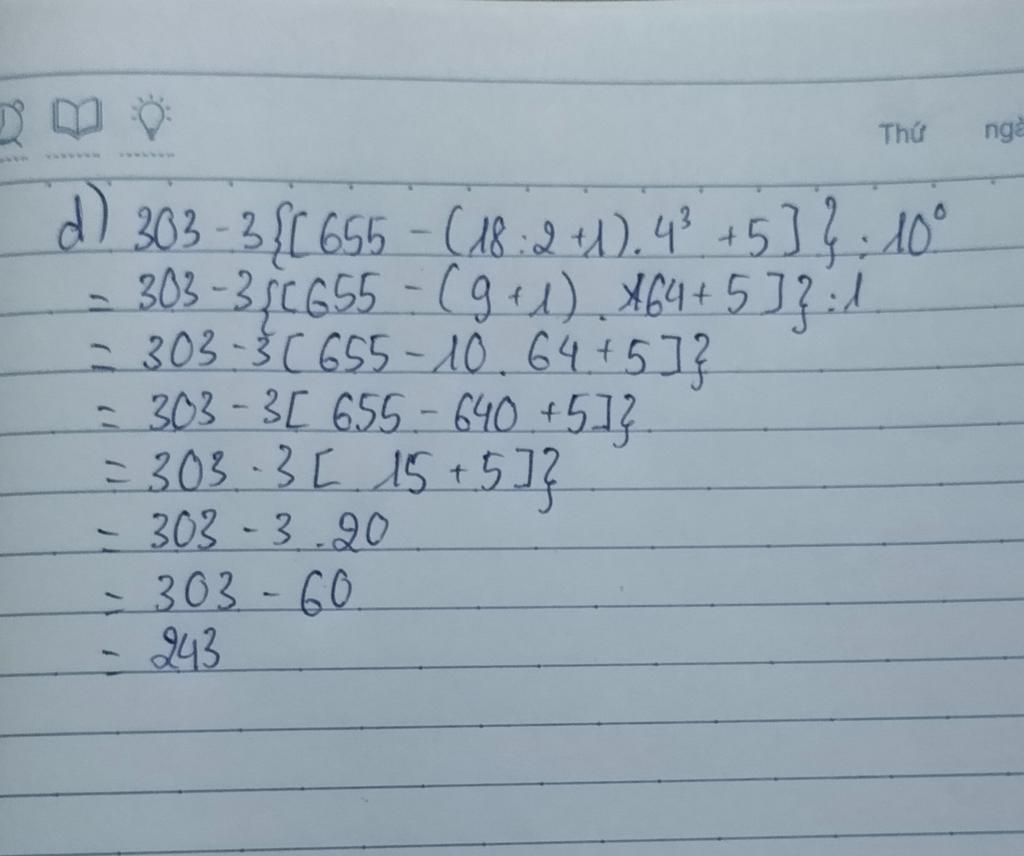 Thứ ngà
d) 303 - 3{[655 - (18:2+1).4³ +5]}:10⁰
= 303 - 3{[655 - (9+1).64+5]}:1
= 303 - 3[655 - 10.64+5]}
= 303 - 3[655 - 640 +5]}
= 303 - 3[15+5]}
= 303 - 3.20
= 303 - 60
= 243